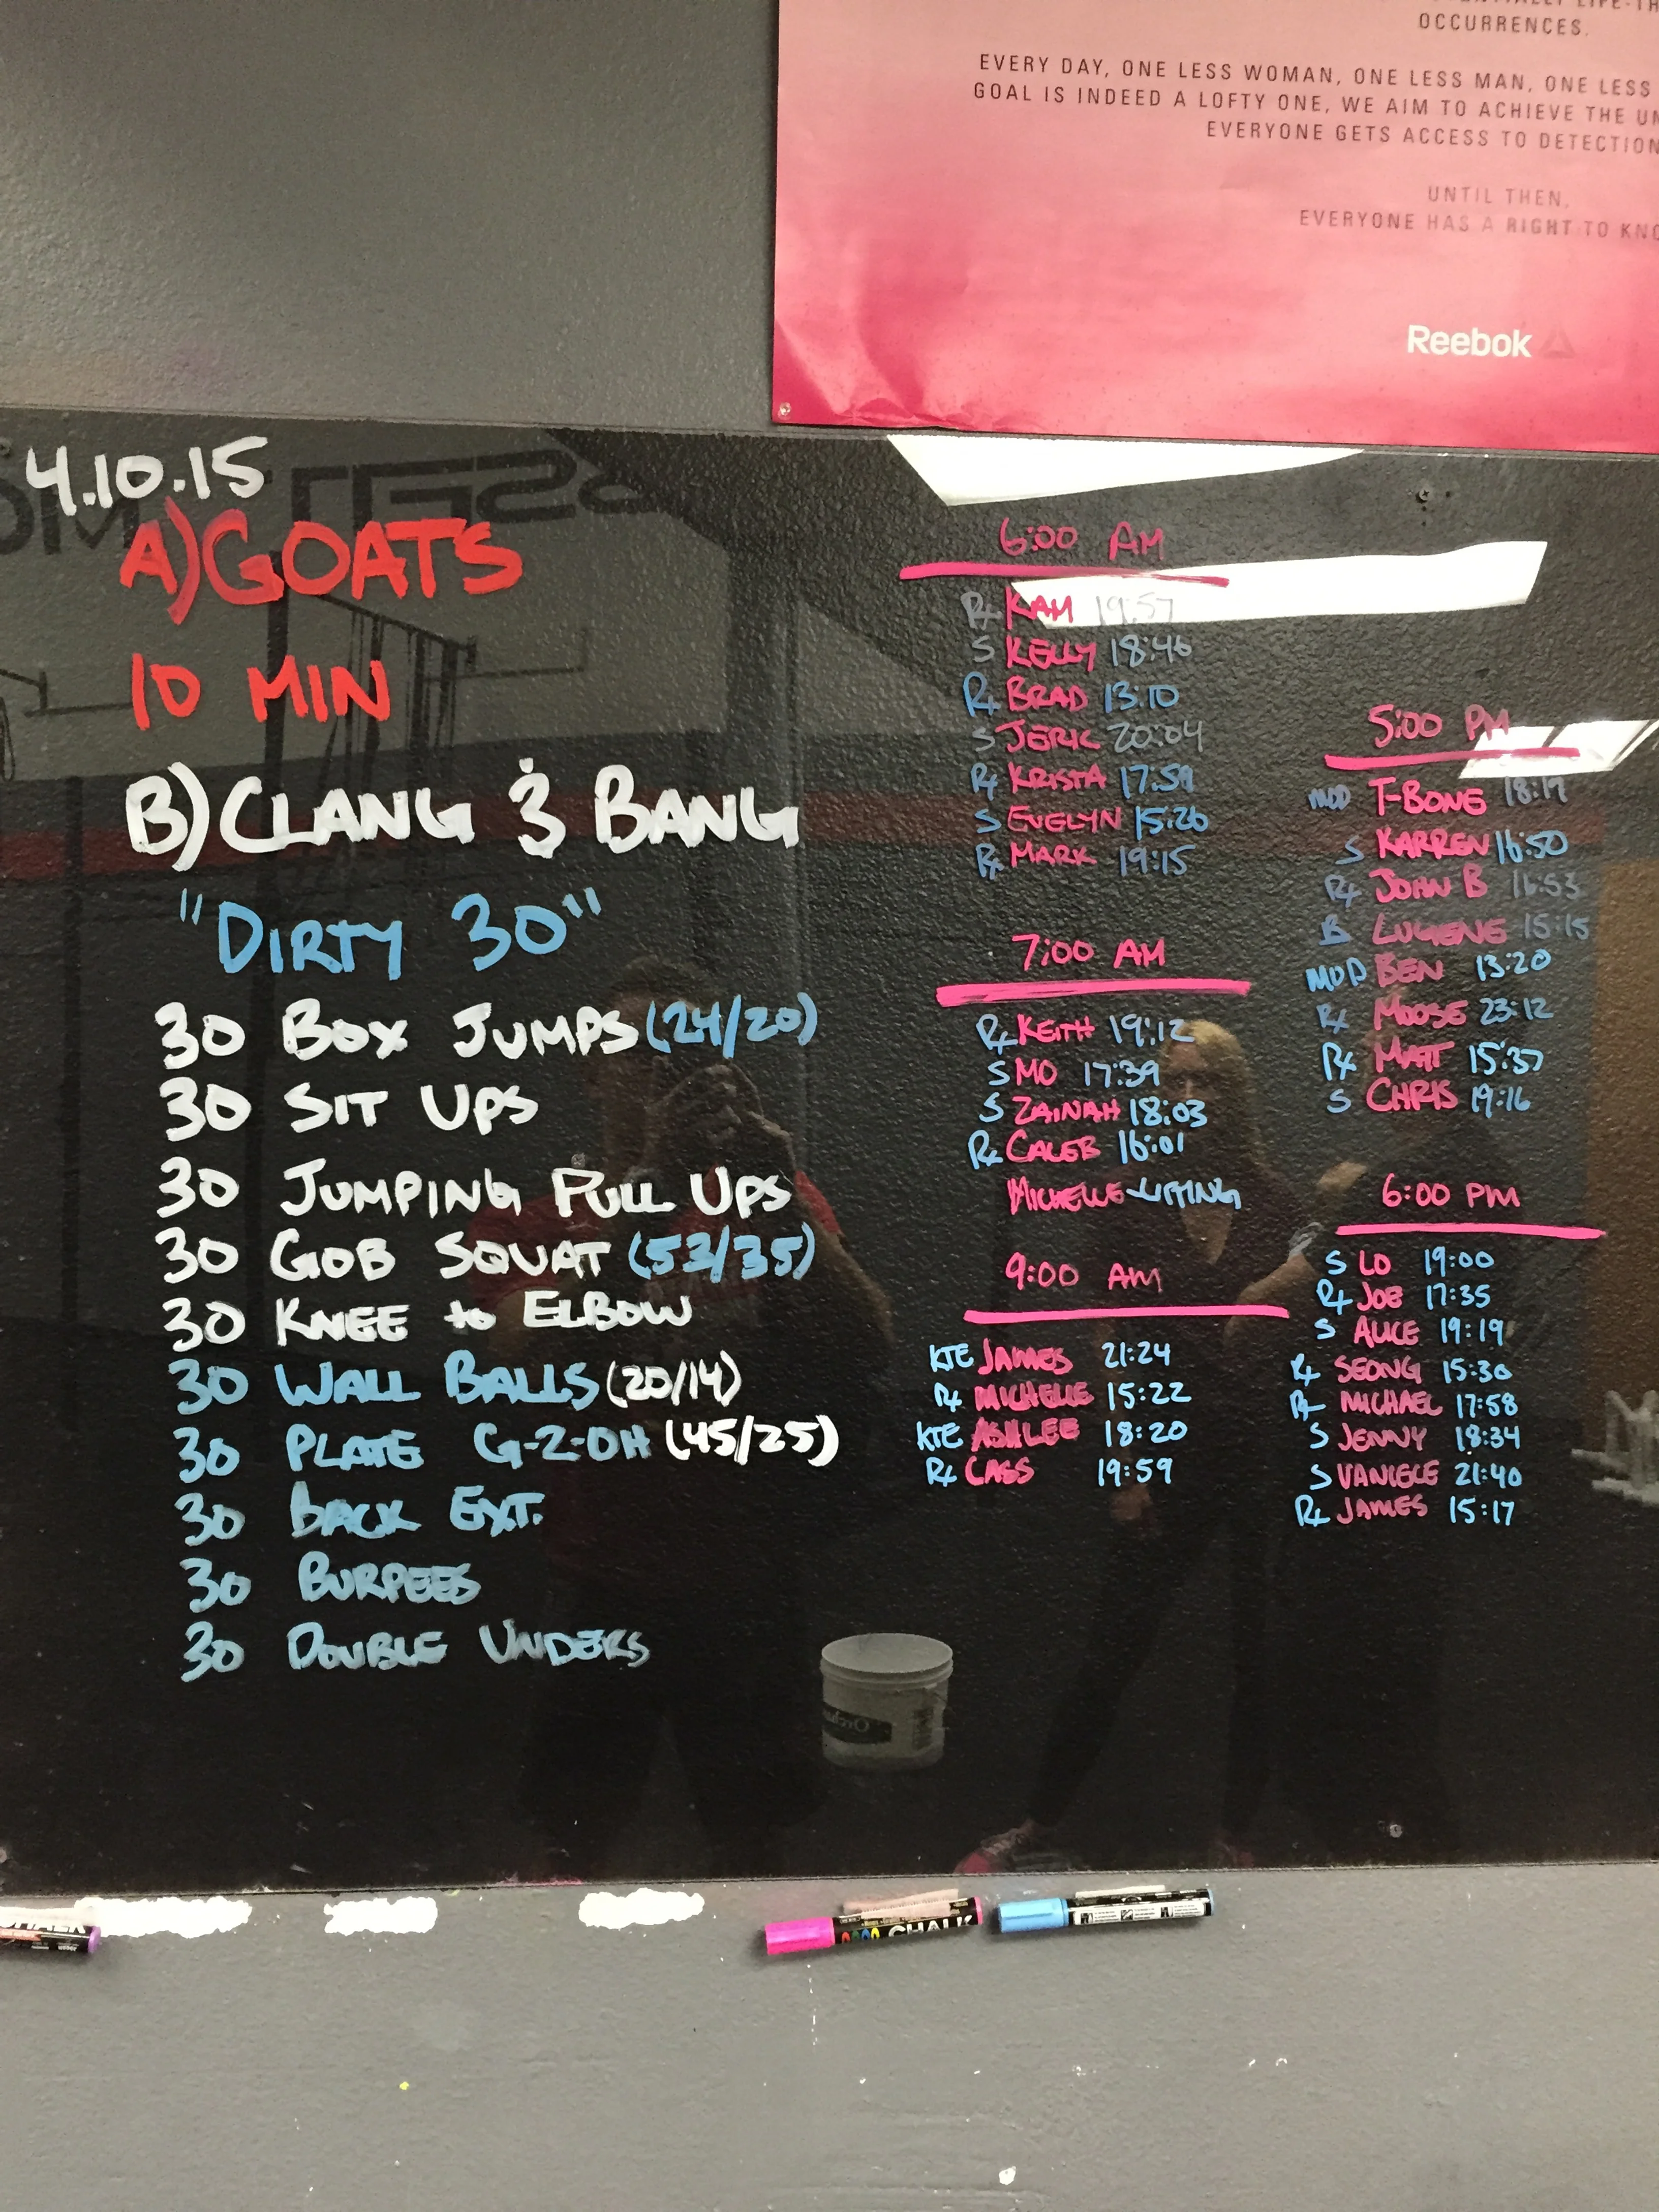 OCCURRENCES.
EVERY DAY, ONE LESS WOMAN, ONE LESS MAN, ONE LESS
GOAL IS INDEED A LOFTY ONE, WE AIM TO ACHIEVE THE
EVERYONE GETS ACCESS TO DETECTION
UNTIL THEN,
EVERYONE HAS A RIGHT TO
Reebok
4.10.15
A) GOATS
10 MIN
B) CLANG & BANG
"DIRTY 30"
30 BOX JUMPS (24/20)
30 SIT UPS
30 JUMPING PULL UPS
30 GOB SQUAT (53/35)
30 KNEE to ELBOW
30 WALL BALLS (20/14)
30 PLATE G-2-OH (45/25)
30 BACK EXT.
30 BURPEES
30 DOUBLE UNDERS
6:00 AM
Rx KAM 19:57
S KELLY 18:46
Rx BRAD 13:10
S JERIC 20:04
Rx KRISTA 17:59
S EVELYN 15:26
Rx MARK 19:15
7:00 AM
Rx KEITH 19:12
S MO 17:39
S ZAINAH 18:03
Rx CALEB 16:01
MICHELLE - LIFTING
9:00 AM
KTE JAMES 21:24
Rx MICHELLE 15:22
KTE ASHLEE 18:20
Rx CASS 19:59
5:00 PM
MOD T-BONE 18:19
S KARREN 16:50
Rx JOHN B 16:53
LUGENE 15:15
MOD BEN 13:20
Rx MOOSE 23:12
Rx MATT 15:37
S CHRIS 19:16
6:00 PM
S LO 19:00
Rx JOE 17:35
S ALICE 19:19
Rx SEONG 15:30
Rx MICHAEL 17:58
S JENNY 18:34
S VANIECE 21:40
Rx JAMES 15:17
CHALK